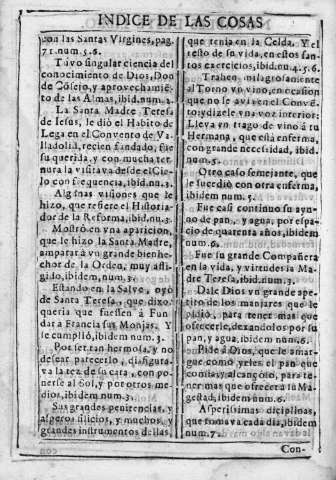 INDICE DE LAS COSAS
con las Santas Virgines, pag.
71. num. 5. 6.
Tuvo singular ciencia del
conocimiento de Dios, Don
de Cõsejo, y aprovechamiẽ-
to de las Almas, ibid. num. 2.
La Santa Madre Teresa
de Jesus, le diò el Habito de
Lega en el Convento de Va-
lladolid, recien fundado, fue
su querida, y con mucha ter-
nura la visitava desde el Cie-
lo con frequencia, ibid. nu. 3.
Algunas visiones que le
hizo, que refiere el Historia-
dor de la Reforma, ibid. nu. 3.
Mostrò en vna aparicion,
que le hizo la Santa Madre,
amparar à vn grande bienhe-
chor de la Orden, muy afli-
gido, ibidem, num. 3.
Estando en la Salve, oyò
de Santa Teresa, que dixo:
queria que fuessen à Fun
dar à Francia sus Monjas. Y
se cumpliò, ibidem num. 3.
Por ser tan hermosa, y no
desear parecerlo, disfigura-
va la tez de su cara, con po-
nerse al Sol, y por otros me-
dios, ibidem, num. 3.
Sus grandes penitencias, y
asperos silicios, y muchos, y
grandes instrumentos dellas,
que tenia en la Celda. Y el
resto de su vida, en estos san-
tos exercicios, ibid. nu. 4. 5. 6.
Trahen milagrosamente
al Torno vn vino, en ocasion
que no le avia en el Convẽ-
to; y dizele vna voz interior:
Lleva vn trago de vino à tu
Hermana, que està enferma,
con grande necessidad, ibid.
num. 5.
Otro caso semejante, que
le sucediò con otra enferma,
ibidem num. 5.
Fue casi continuo su ayu-
no de pan, y agua, por espa-
cio de quarenta años, ibidem
num. 6.
Fue su grande Compañera
en la vida, y virtudes la Ma-
dre Teresa, ibid. num. 3.
Dale Dios vn grande ape-
tito de los manjares que le
pidiò, para tener mas que
ofrecerle, dexandolos por su
pan, y agua, ibidem num. 6.
Pide à Dios, que le amar-
gue como yeles el pan que
comia, y alcançolo, para te-
ner mas que ofrecer à su Ma-
gestad, ibidem num. 6.
Asperissimas diciplinas,
que tomava cada dia, ibidem
num. 7.
Con-